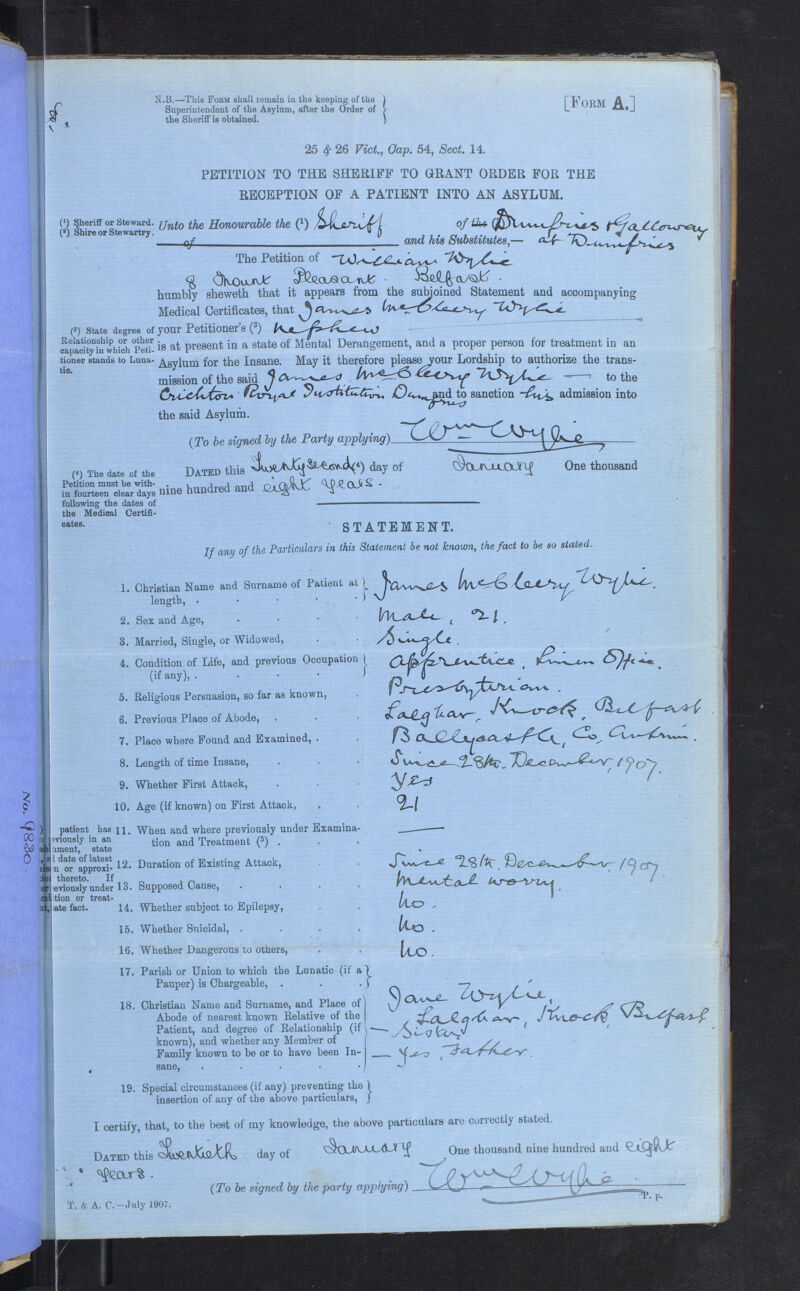 N.B.—This Form shall remain in the keeping of the
Superintendent of the Asylum, after the Order of
the Sheriff is obtained.
[Form A.]
25 & 26 Vict., Cap. 54, Sect. 14.
PETITION TO THE SHERIFF TO GRANT ORDER FOR THE
RECEPTION OF A PATIENT INTO AN ASYLUM.
(¹) Sheriff or Steward.
(²) Shire or Stewartry.
Unto the Honourable the (¹) Sheriff of the Dumfries & Galloway
of and his Substitutes,— at Dumfries
The Petition of William Wylie
8 Mount Pleasant. Belfast.
humbly sheweth that it appears from the subjoined Statement and accompanying
Medical Certificates, that James McCleery Wylie
(³) State degree of
Relationship or other
capacity in which Peti-
tioner stands to Luna-
tic.
your Petitioner's (³) nephew
is at present in a state of Mental Derangement, and a proper person for treatment in an
Asylum for the Insane. May it therefore please your Lordship to authorize the trans-
mission of the said James McCleery Wylie — to the
Crichton Royal Institution Dumfries and to sanction his admission into
the said Asylum.
(To be signed by the Party applying) Wm Wylie
(⁴) The date of the
Petition must be with-
in fourteen clear days
following the dates of
the Medical Certifi-
cates.
Dated this Twenty second (⁴) day of January One thousand
nine hundred and eight years.
STATEMENT.
If any of the Particulars in this Statement be not known, the fact to be so stated.
1. Christian Name and Surname of Patient at
length, . James McCleery Wylie.
2. Sex and Age, Male, 21.
3. Married, Single, or Widowed, Single.
4. Condition of Life, and previous Occupation
(if any), . Apprentice, Linen Office.
5. Religious Persuasion, so far as known, Presbyterian.
6. Previous Place of Abode, Lalghar, Knock, Belfast
7. Place where Found and Examined, Ballycastle, Co, Antrim.
8. Length of time Insane, Since 28th. December, 1907.
9. Whether First Attack, Yes
10. Age (if known) on First Attack, 21
patient has
eviously in an
nment, state
date of latest
n or approxi-
thereto. If
eviously under
tion or treat-
ate fact.
No. 9830
11. When and where previously under Examina-
tion and Treatment (⁵) . —
12. Duration of Existing Attack, Since 28th December, 1907
13. Supposed Cause, Mental worry.
14. Whether subject to Epilepsy, No.
15. Whether Suicidal, No.
16. Whether Dangerous to others, No.
17. Parish or Union to which the Lunatic (if a
Pauper) is Chargeable, .
18. Christian Name and Surname, and Place of
Abode of nearest known Relative of the
Patient, and degree of Relationship (if
known), and whether any Member of
Family known to be or to have been In-
sane,
Jane Wylie,
Lalghar, Knock, Belfast
— Sister
— Yes, Father.
19. Special circumstances (if any) preventing the
insertion of any of the above particulars,
I certify, that, to the best of my knowledge, the above particulars are correctly stated.
Dated this Twentieth day of January One thousand nine hundred and eight
years.
(To be signed by the party applying) Wm Wylie
T. & A. C.—July 1907.
P. p.